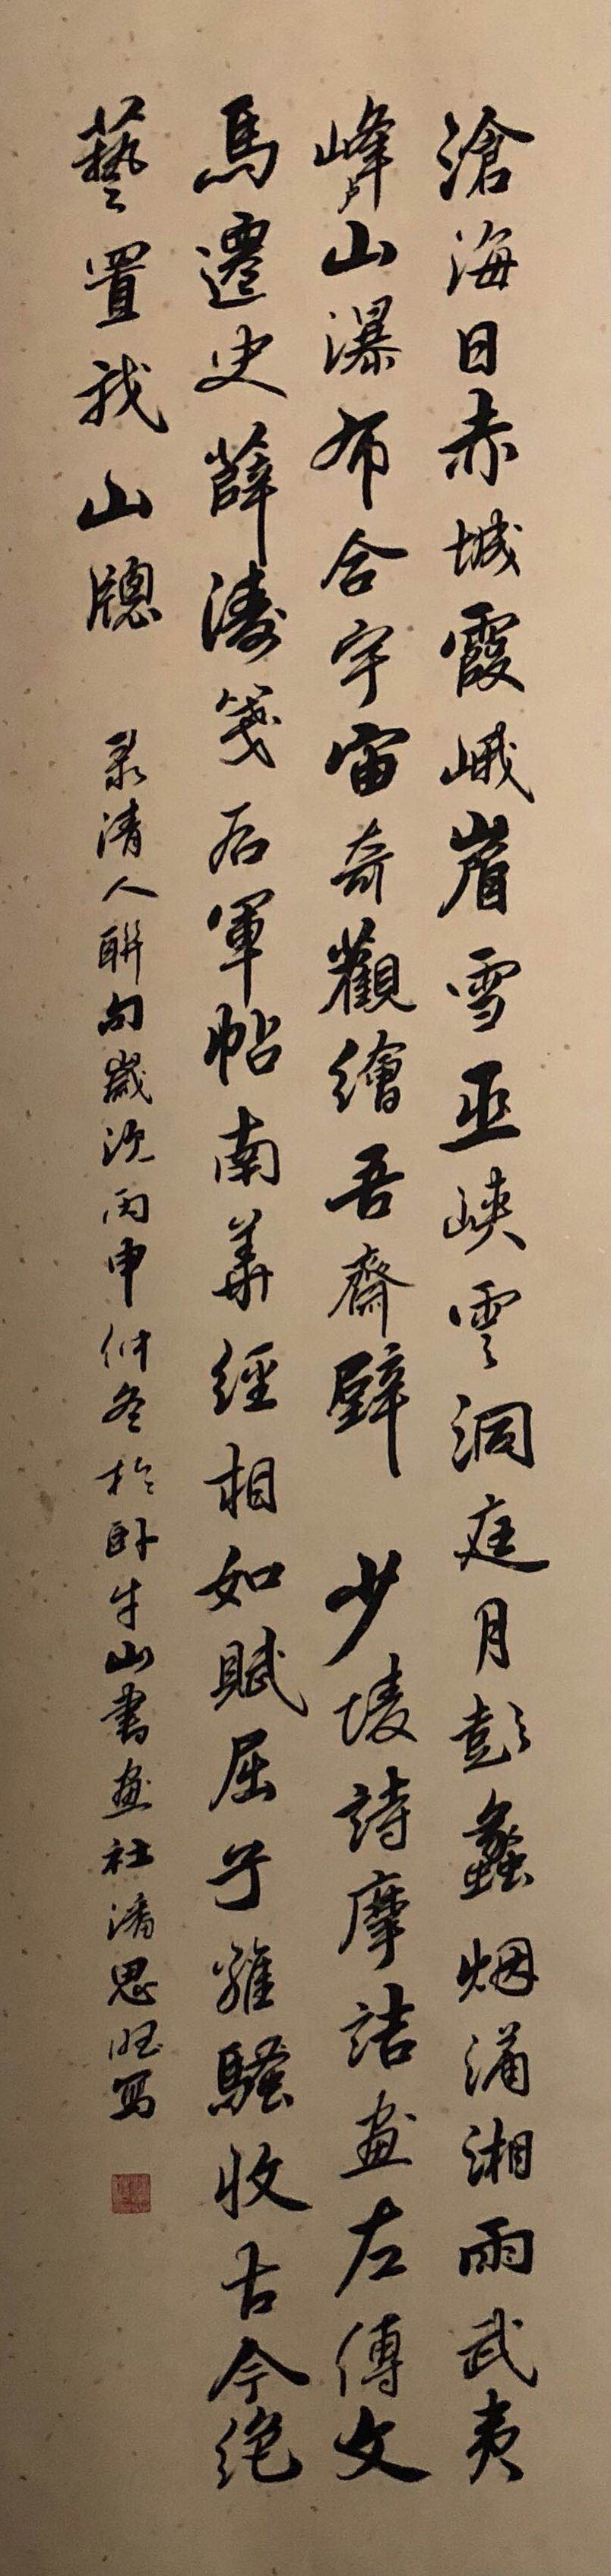 滄海日赤城霞峨眉雪巫峽雲洞庭月彭蠡烟瀟湘雨武夷
峰山瀑布合宇宙奇觀繪吾齋壁 少陵詩摩詰畫左傳文
馬遷史薛濤箋右軍帖南華經相如賦屈子離騷收古今絕
藝置我山牕
录清人聯句歲次丙申仲冬於卧牛山書畫社潘思旺写